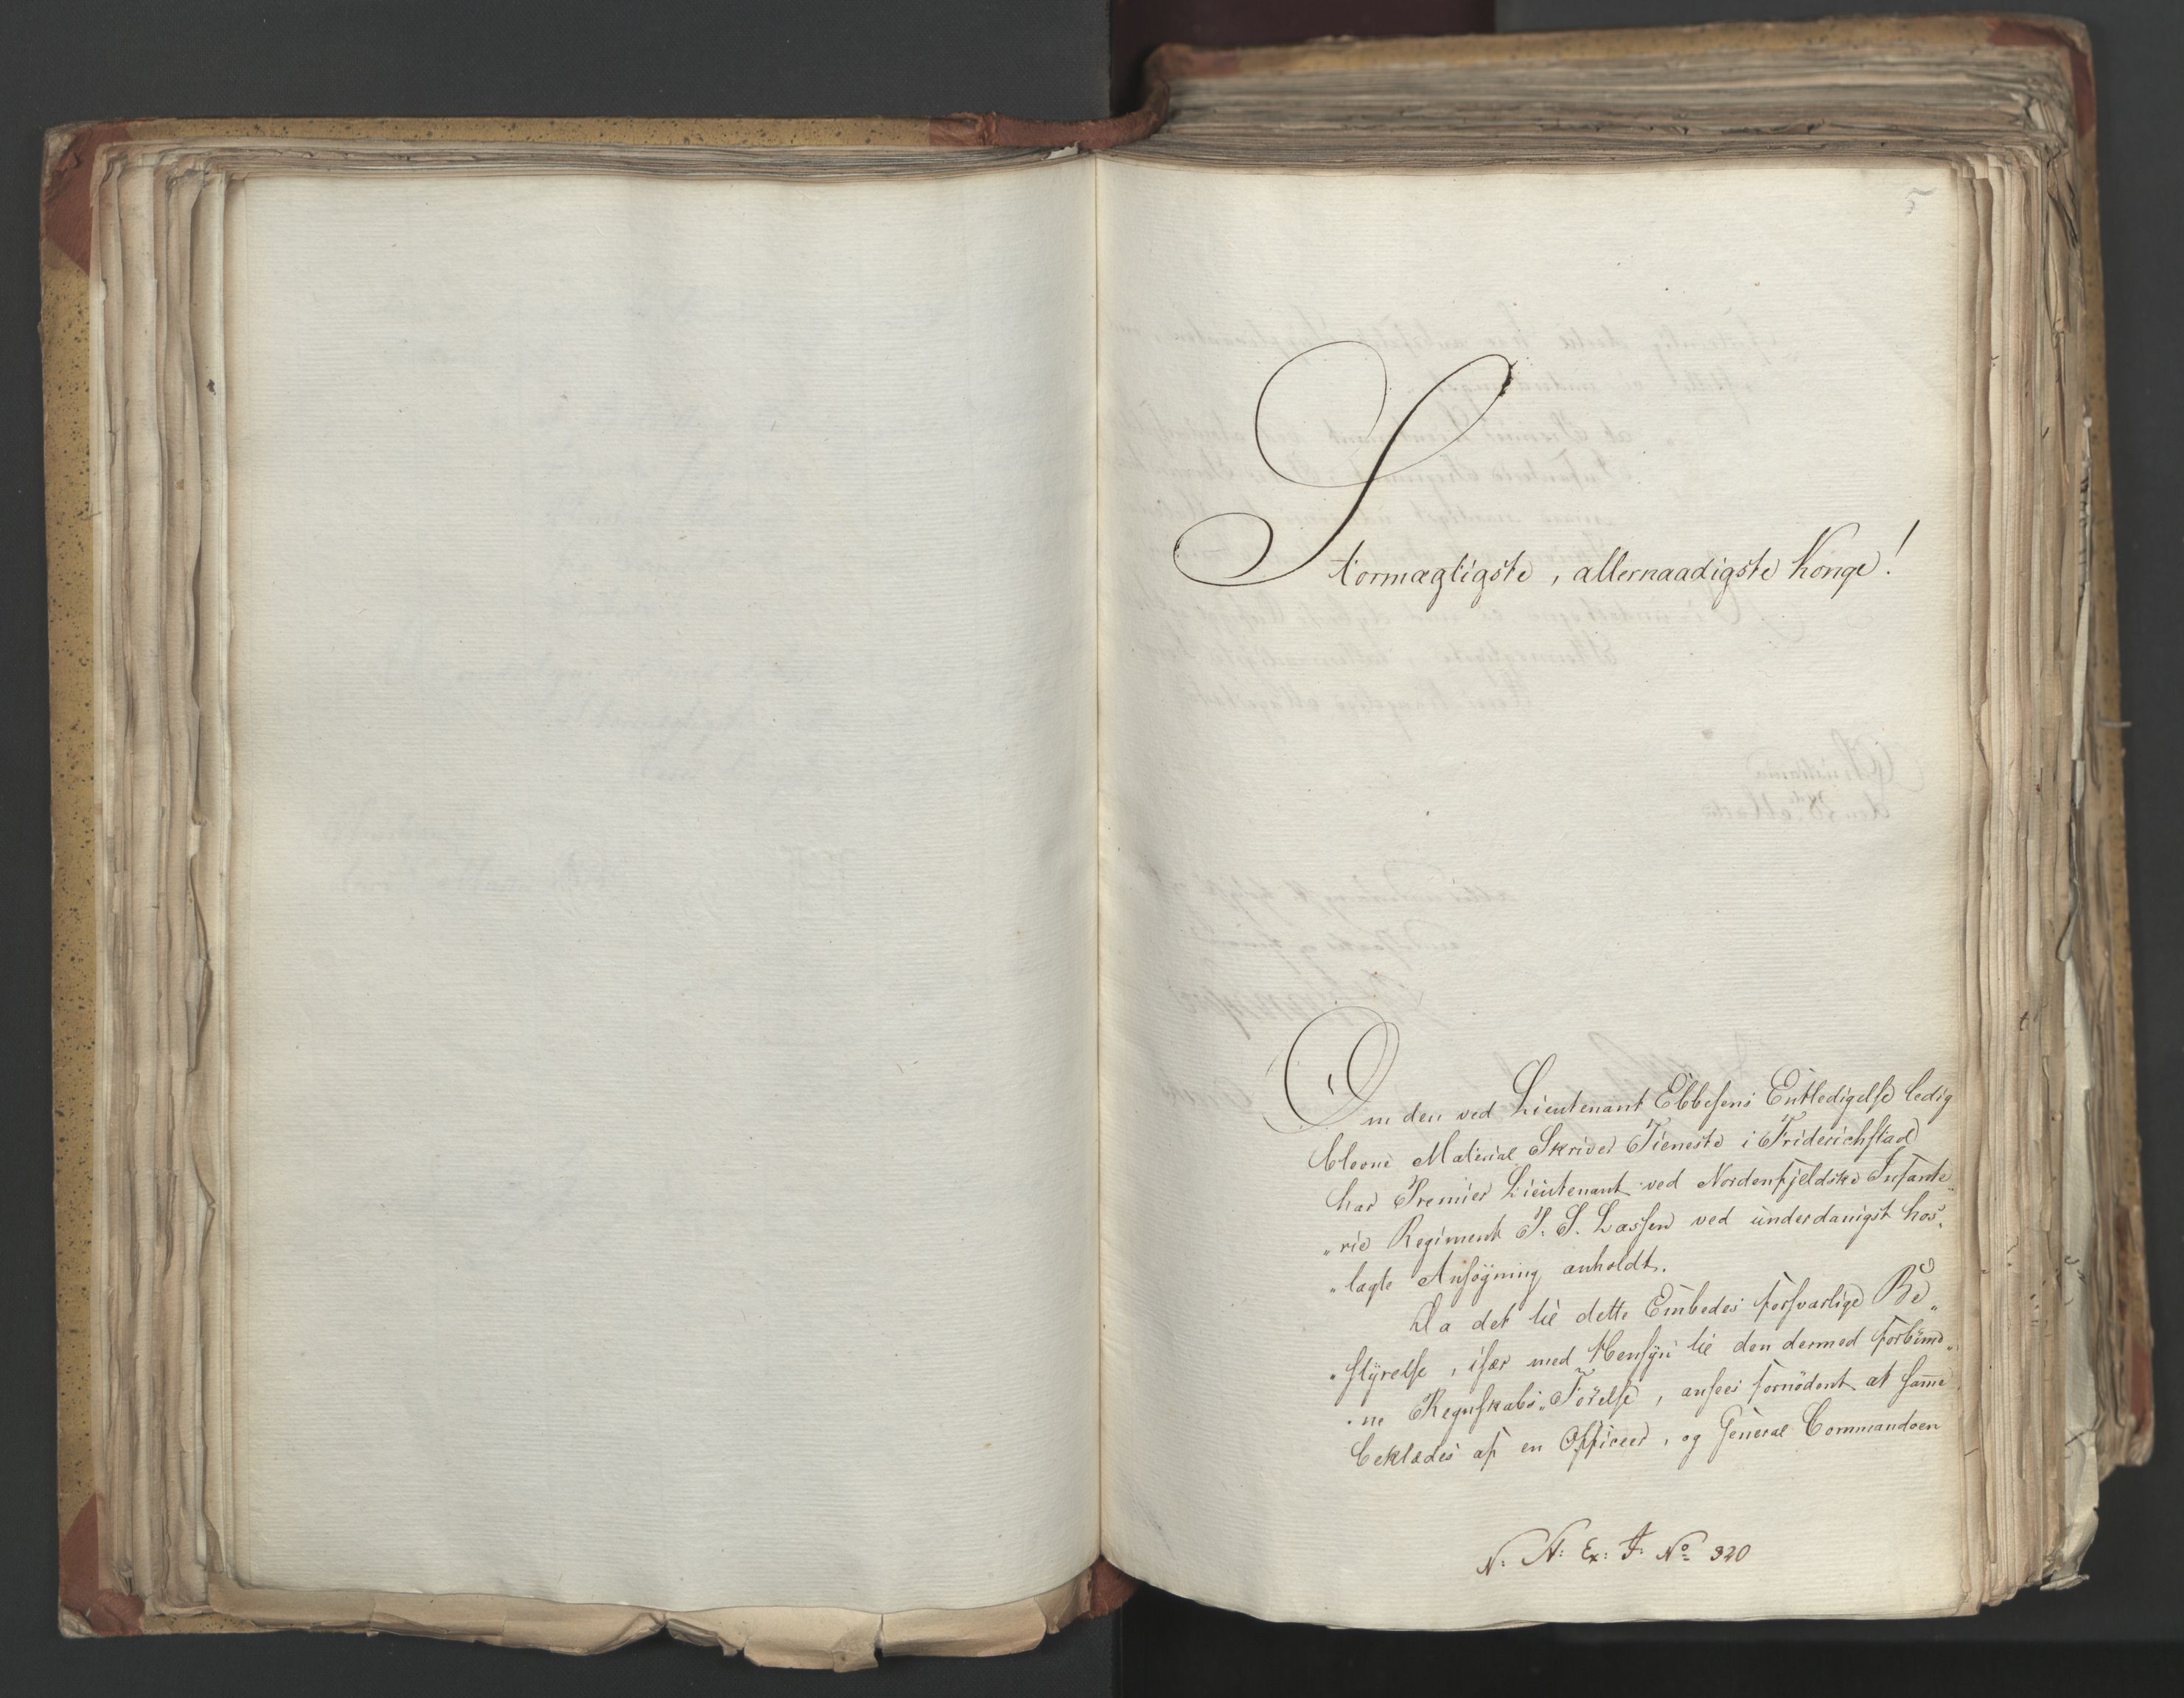 5
Stormægtigste, allernaadigste Konge!
Om den ved Lieutenant Ebbesens Entledigelse ledig
blevne Material Skriver Tieneste i Friderichstad
har Premier Lieutenant ved Nordenfjeldske Infante„
„rie Regiment P. S. Lassen ved underdanigst hos„
„lagte Ansøgning anholdt.
Da det til dette Embedes forsvarlige Be„
„styrelse, især med Hensyn til den dermed forbund„
„ne Regnskabs„Førelse, ansees fornødent at samme
beklædes af en Officeer, og General Commandoen
N: A: Ex: J: No 320